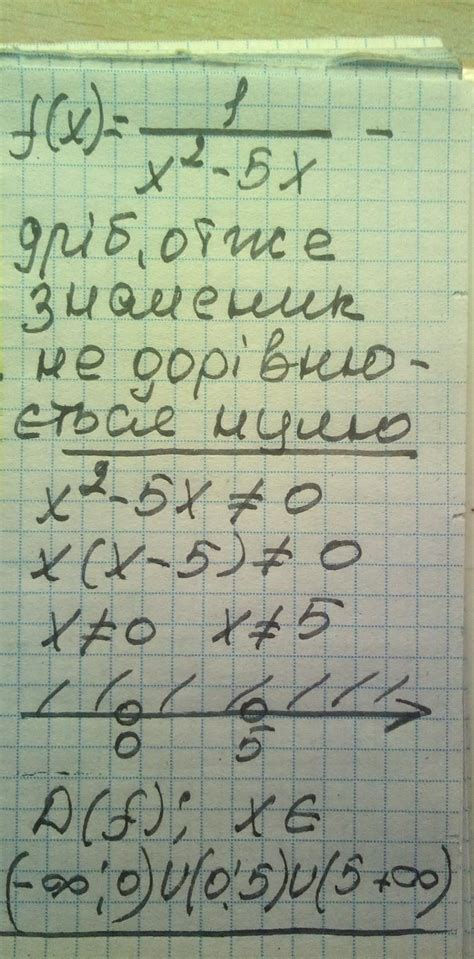 f(x) = 1/(x² - 5x) -
дріб, отже
знаменик
не дорівню-
ється нулю
x² - 5x ≠ 0
x(x - 5) ≠ 0
x ≠ 0 x ≠ 5
0 5
D(f); x ∈
(-∞; 0) ∪ (0; 5) ∪ (5 +∞)